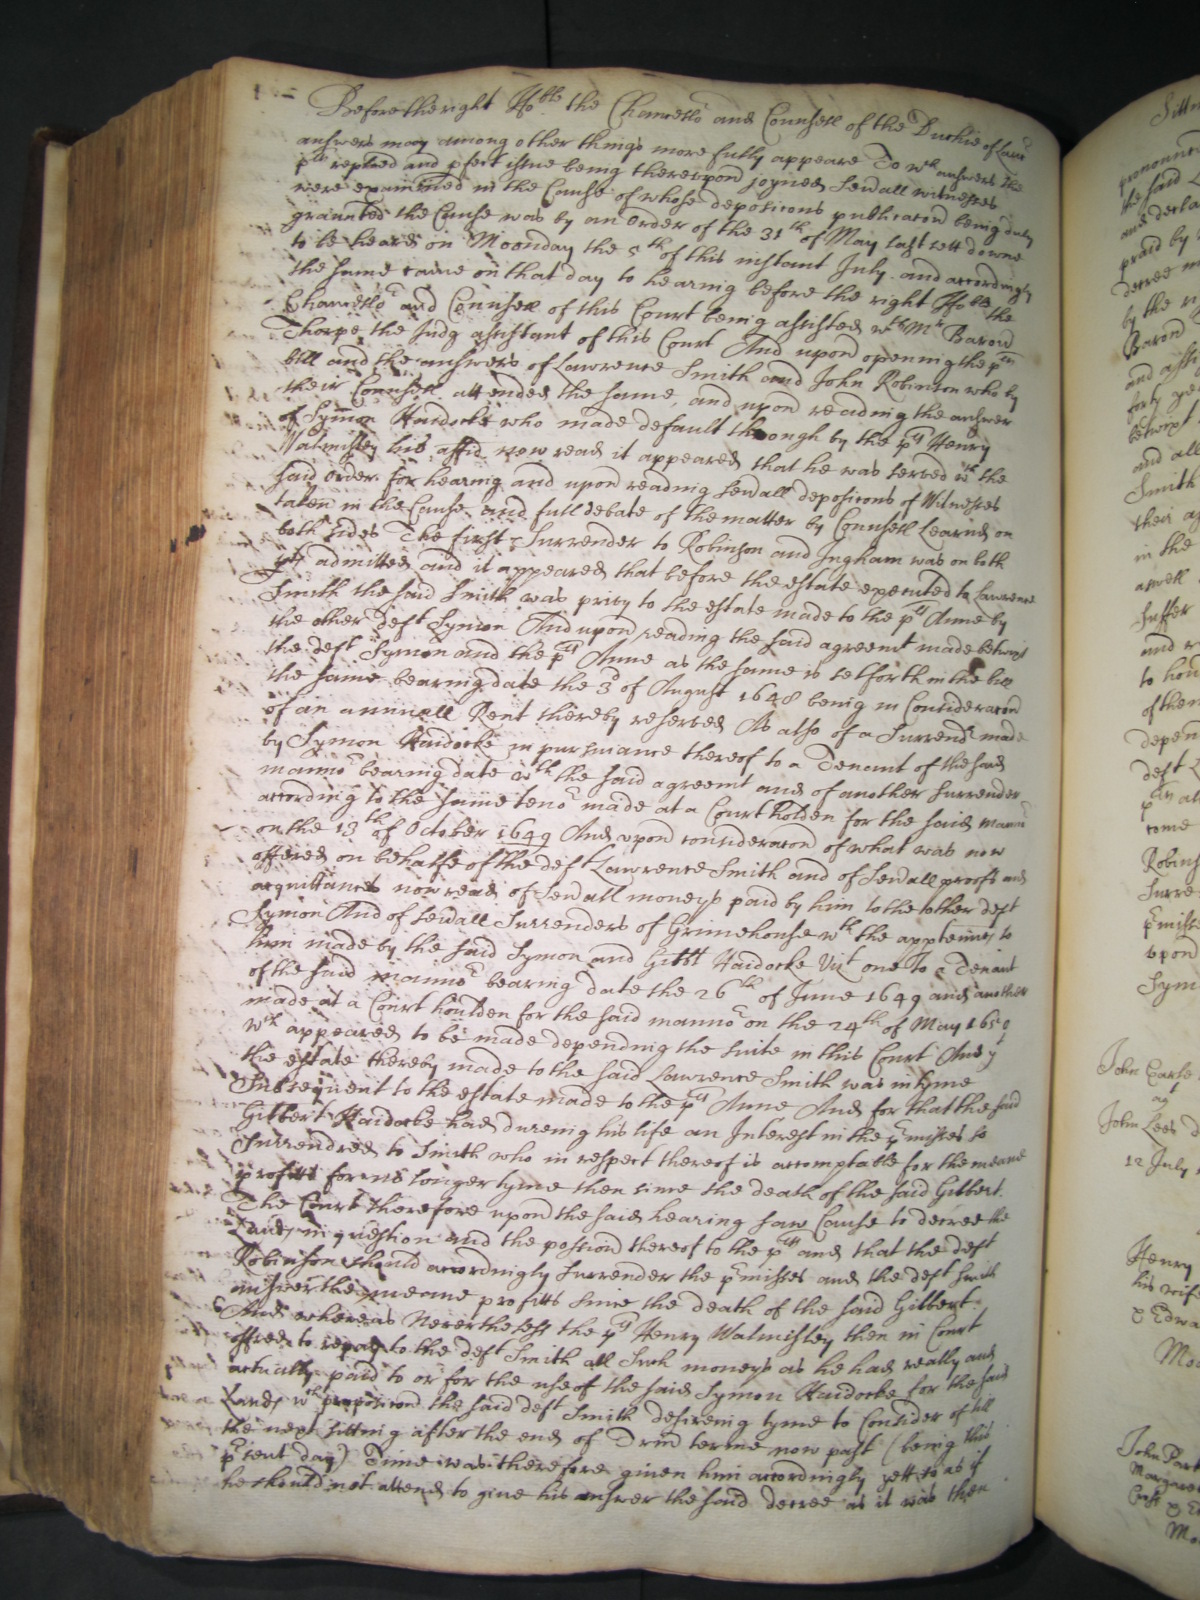 Before the right Hoble the Chancello and Counsell of the Duchie of Lanc
answers may among other things more fully appeare To wch answers the
plt replied and pfect issue being thereupon joyned sevall witnesses
were examined in the Cause of whose deposicons publicacon being duly
graunted the Cause was by an Order of the 31th of May last sett downe
to be heard on Moonday the 5th of this instant July and accordingly
the same came on that day to hearing before the right Hoble the
Chancello and Counsell of this Court being assisted wth Mr Baron
Thorpe the Judg assistant of this Court And upon opening the plts
bill and the answers of Lawrence Smith and John Robinson who by
their Counsell attended the same, and upon reading the answer
of Symon Haidocke who made default though by the plt Henry
Walmisley his affid now read it appeared that he was served wth the
said order for hearing and upon reading sevall deposicons of Witnesses
taken in the Cause and full debate of the matter by Counsell Learned on
both sides The first Surrender to Robinson and Ingham was on both
pts admitted and it appeared that before the estate executed to Lawrence
Smith the said Smith was privy to the estate made to the plt Anne by
the other deft Symon And upon reading the said agreemt made betwixt
the deft Symon and the plt Anne as the same is setforth in the bill
the same bearing date the 3d of August 1648 being in Consideracon
of an annuall Rent thereby reserved As also of a Surrendr made
by Symon Haidocke in pursuance thereof to a Tenant of the said
manno bearing date wth the said agreemt and of another surrender
according to the same teno made at a Court holden for the said manno
on the 13th of October 1649 And upon consideracon of what was now
offered on behalfe of the deft Lawrence Smith and of sevall proofs and
acquittances now read of sevall moneys paid by him to the other deft
Symon And of sevall Surrenders of Grimehouse wth the apptennces to
him made by the said Symon and Gilbt Haidocke Vizt one To a Tenant
of the said manno bearing date the 26th of June 1649 and another
made at a Court houlden for the said manno on the 24th of May 1650
wch appeared to be made depending the suite in this Court And yt
the estate thereby made to the said Lawrence Smith was in tyme
Subsequent to the estate made to the plt Anne And for that the said
Gilbert Haidocke had dureing his life an Interest in the pmisses so
Surrendred to Smith who in respect thereof is accomptable for the meane
profitts for no longer tyme then since the death of the said Gilbert.
The Court therefore upon the said hearing saw Cause to decree the
Lands in question and the possion thereof to the plts and that the deft
Robinson should accordingly surrender the pmisses and the deft Smith
answer the meane profitts since the death of the said Gilbert.
And whereas Neverthelesse the plt Henry Walmisley then in Court
offred to repay to the deft Smith all such moneys as he had really and
actually paid to or for the use of the said Symon Haidocke for the said
Lands wch proposicon the said deft Smith desireing tyme to Consider of till
the next sitting after the end of Trin terme now past (being this
psent day) Time was therefore given him accordingly yett so as if
he should not attend to give his answer the said decree as it was then
Sittin
pronounc
the said L
and decla
praid by
decree m
by the
Baron
and assi
forty ye
betwixt
and all
Smith
their
in the
aswell
Suffer
and
to hou
of them
depen
deft L
come
Robins
Surre
pmiss
upon
Sym
John Earle
agt
John Lees
12 July
Henry
his wife
Edwa
Mo
John Park
Margaret
Mo